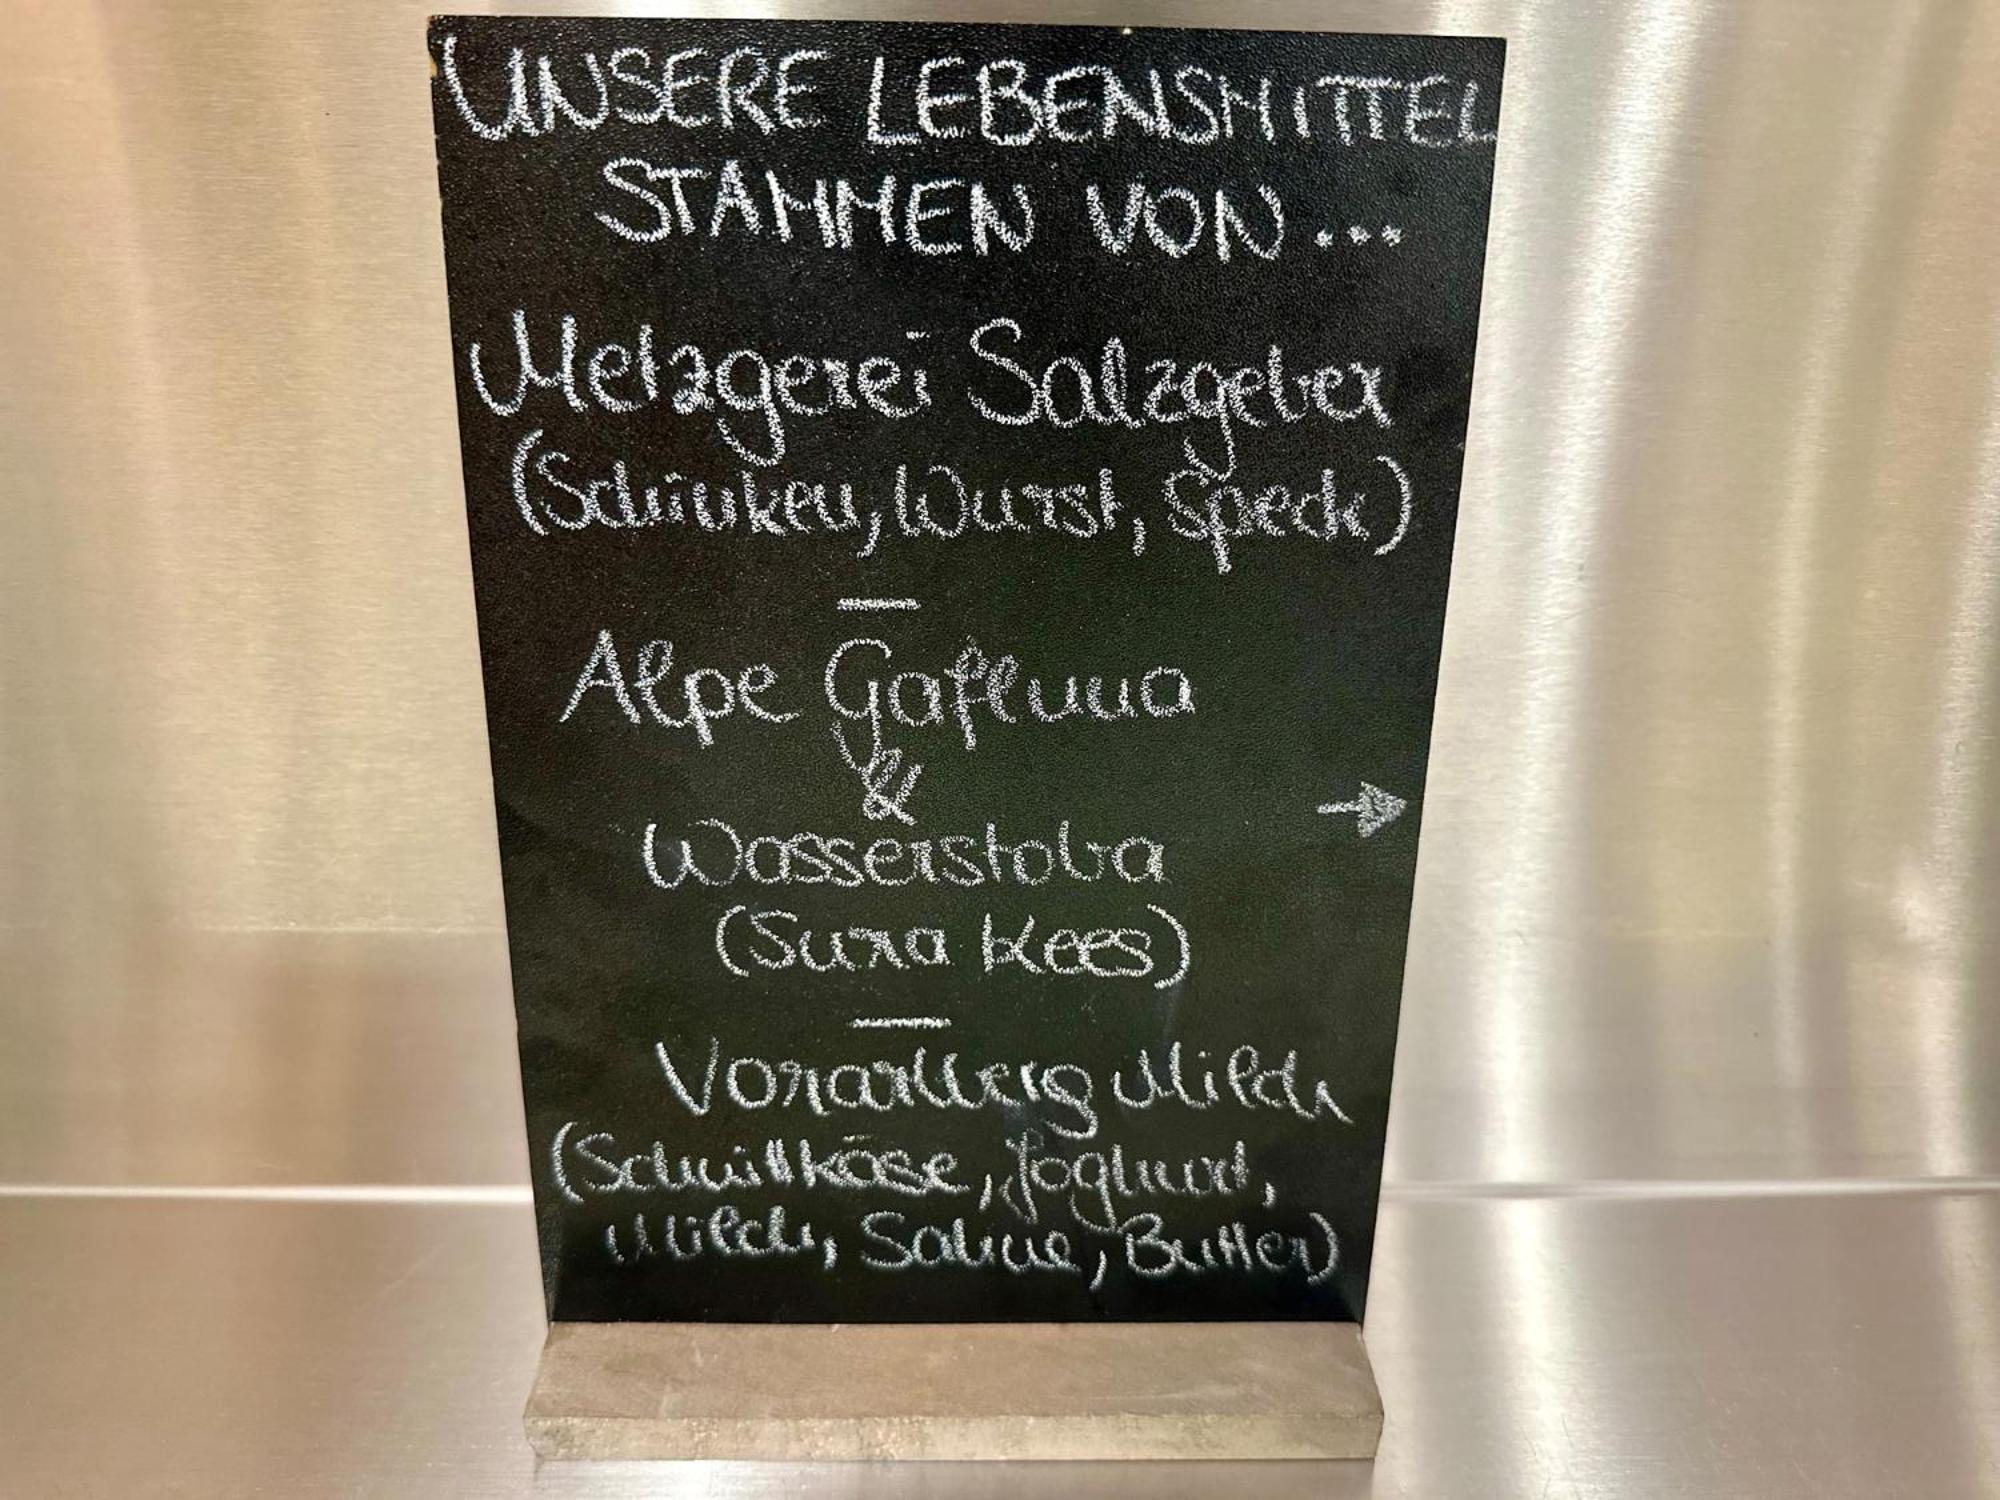 UNSERE LEBENSMITTEL
STAMMEN VON...
Metzgerei Salzgeber
(Schinken, Wurst, Speck)
—
Alpe Gafluna
&
Wasserstoba
(Sura Kees)
—
Vorarlberg Milch
(Schnittkäse, Joghurt,
Milch, Sahne, Butter)